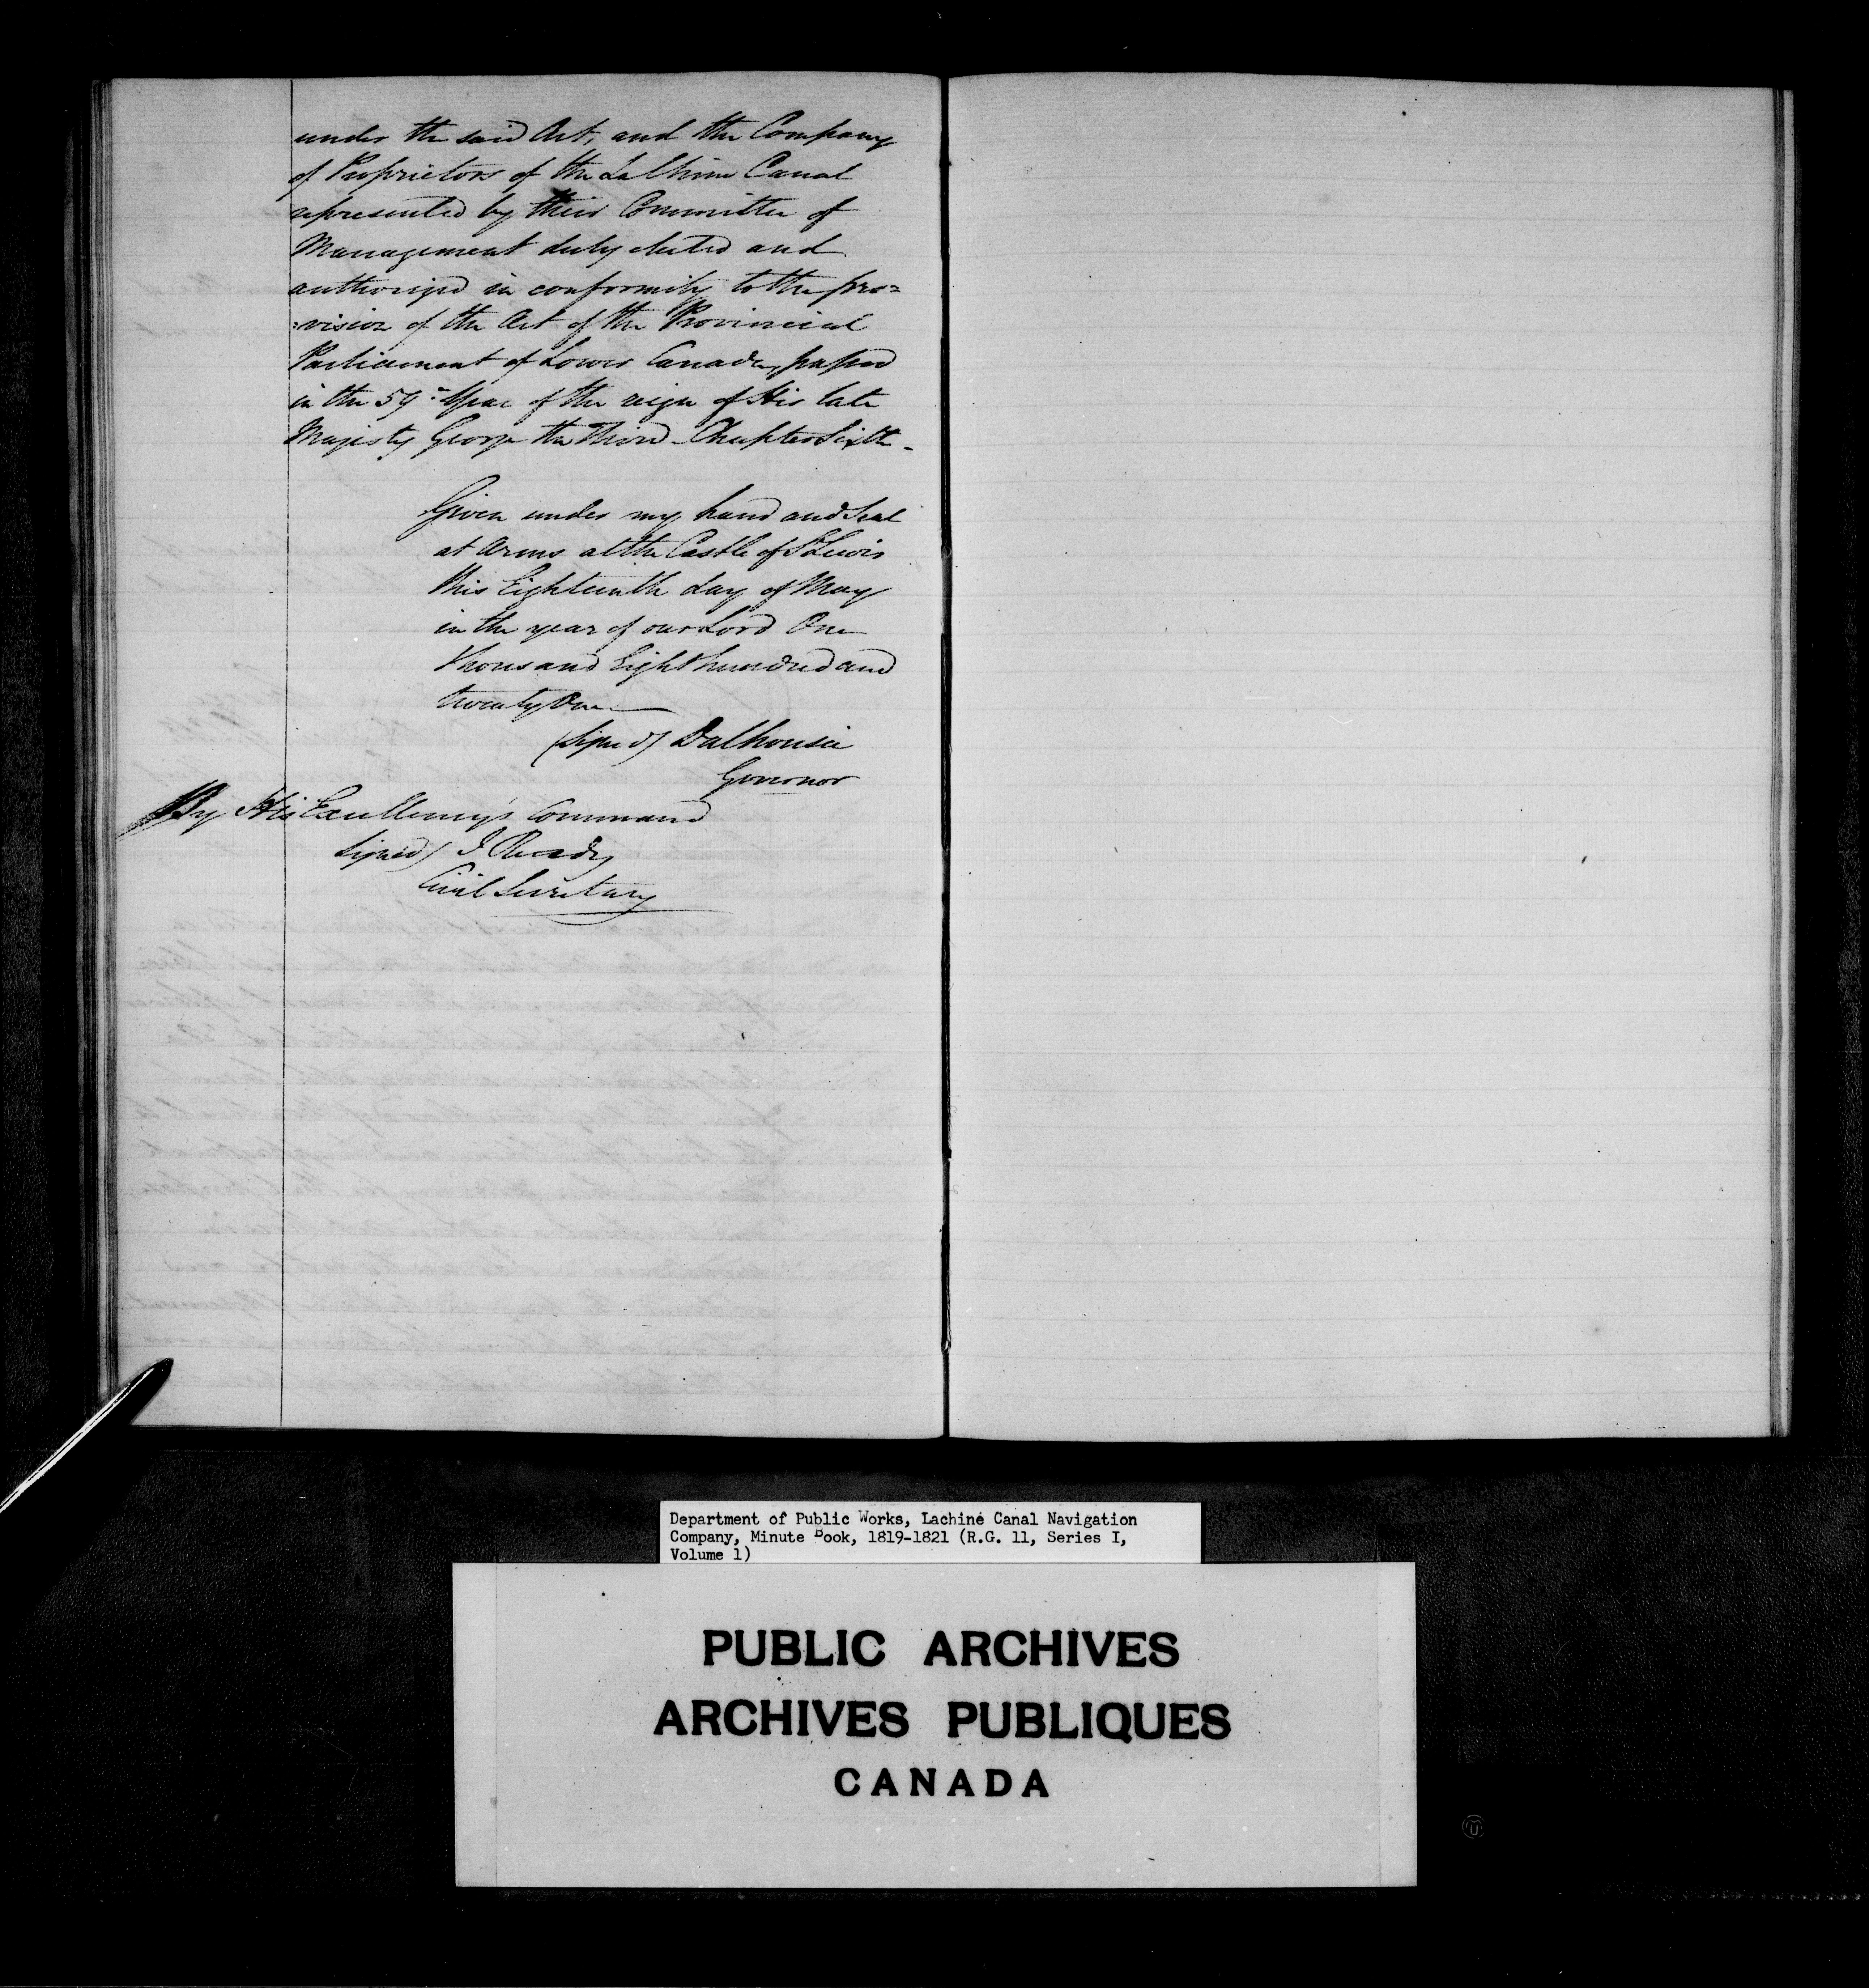 under the said Act, and the Company
of Proprietors of the La Chine Canal
represented by their Committee of
Management duly elected and
authorized in conformity to the pro=
=vision of the Act of the Provincial
Parliament of Lower Canada, passed
in the 59th Year of the reign of His late
Majesty George the Third - Chapter Sixth -
Given under my hand and Seal
at Arms at the Castle of St Lewis
this Eighteenth day of May
in the year of our Lord One
thousand Eight hundred and
twenty One
(Signed) Dalhousie
Governor
By His Excellency's Command
Signed) J Ready
Civil Secretary
Department of Public Works, Lachine Canal Navigation
Company, Minute Book, 1819-1821 (R.G. 11, Series I,
Volume 1)
PUBLIC ARCHIVES
ARCHIVES PUBLIQUES
CANADA